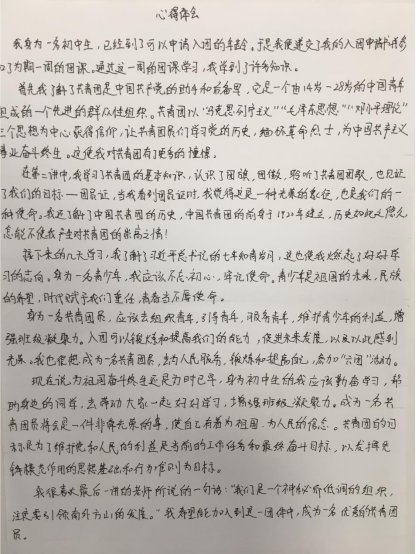 心得体会
我身为一名初中生，已经到了可以申请入团的年龄。于是我便递交了我的入团申请书参
加了为期一周的团课。通过这一周的团课学习，我学到了许多知识。
首先我了解到共青团是中国共产党的助手和后备军，它是一个由14岁-28岁的中国青年
组成的一个先进的群众性组织。共青团以"马克思列宁主义""毛泽东思想""邓小平理论"
三个思想为中心获得信仰，让共青团员们学习党的历史，缅怀革命烈士，为中国共产主义
事业奋斗终生。这使我对共青团有了更多的憧憬。
在第二讲中，我学习了共青团的基本知识，认识了团旗，团徽，聆听了共青团团歌，也见证
了我们的目标——团员证，当我看到团员证时，我觉得这是一种光荣的象征，也是我们的一
种使命。我还了解了中国共青团的历史，中国共青团的前身于1920年建立，历史如此悠久
怎能不使我产生对共青团的崇高之情！
接下来的几天学习，我了解了习近平总书记的七年知青岁月，这也使我燃起了好好学
习的志向。身为一名青少年，我应该不忘初心，牢记使命。青少年是祖国的未来，民族
的希望，时代赋予我们重任，青春当不辱使命。
身为一名共青团员，应该去组织青年，引导青年，服务青年，维护青少年的利益，增
强班级凝聚力。入团可以锻炼和提高我们的能力，促进未来发展，以及以此感到
光荣。我也更想成为一名共青团员，去为人民服务，锻炼和提高自己，参加"六团"活动。
现在说为祖国奋斗终生还是为时已早，身为初中生的我应该勤奋学习，帮
助身边的同学，去带动大家一起好好学习，增强班级凝聚力。成为一名共
青团员将会是一件非常光荣的事，使自己有着为祖国，为人民的信念。共青团的目
标是为了维护党和人民的利益是当前的工作任务和最终奋斗目标，以发挥先
锋模范作用的思想基础和行为准则为目标。
我很喜欢最后一讲的老师所说的一句话："我们是一个神秘而低调的组织，
注定要引领南外方山的发展。"我希望能加入到这一团体中，成为一名优秀的共青团
员。